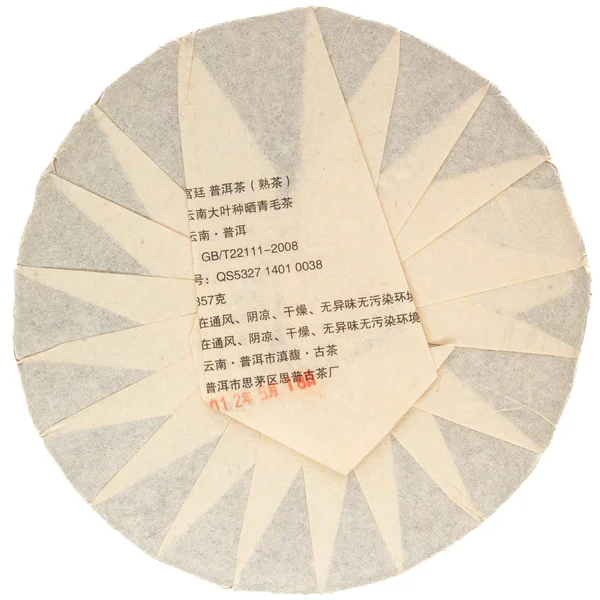 宫廷 普洱茶（熟茶）
云南大叶种晒青毛茶
云南·普洱
GB/T22111-2008
号: QS5327 1401 0038
357克
在通风、阴凉、干燥、无异味无污染环境
在通风、阴凉、干燥、无异味无污染环境
云南·普洱市滇馥·古茶
普洱市思茅区思普古茶厂
012年5月18A